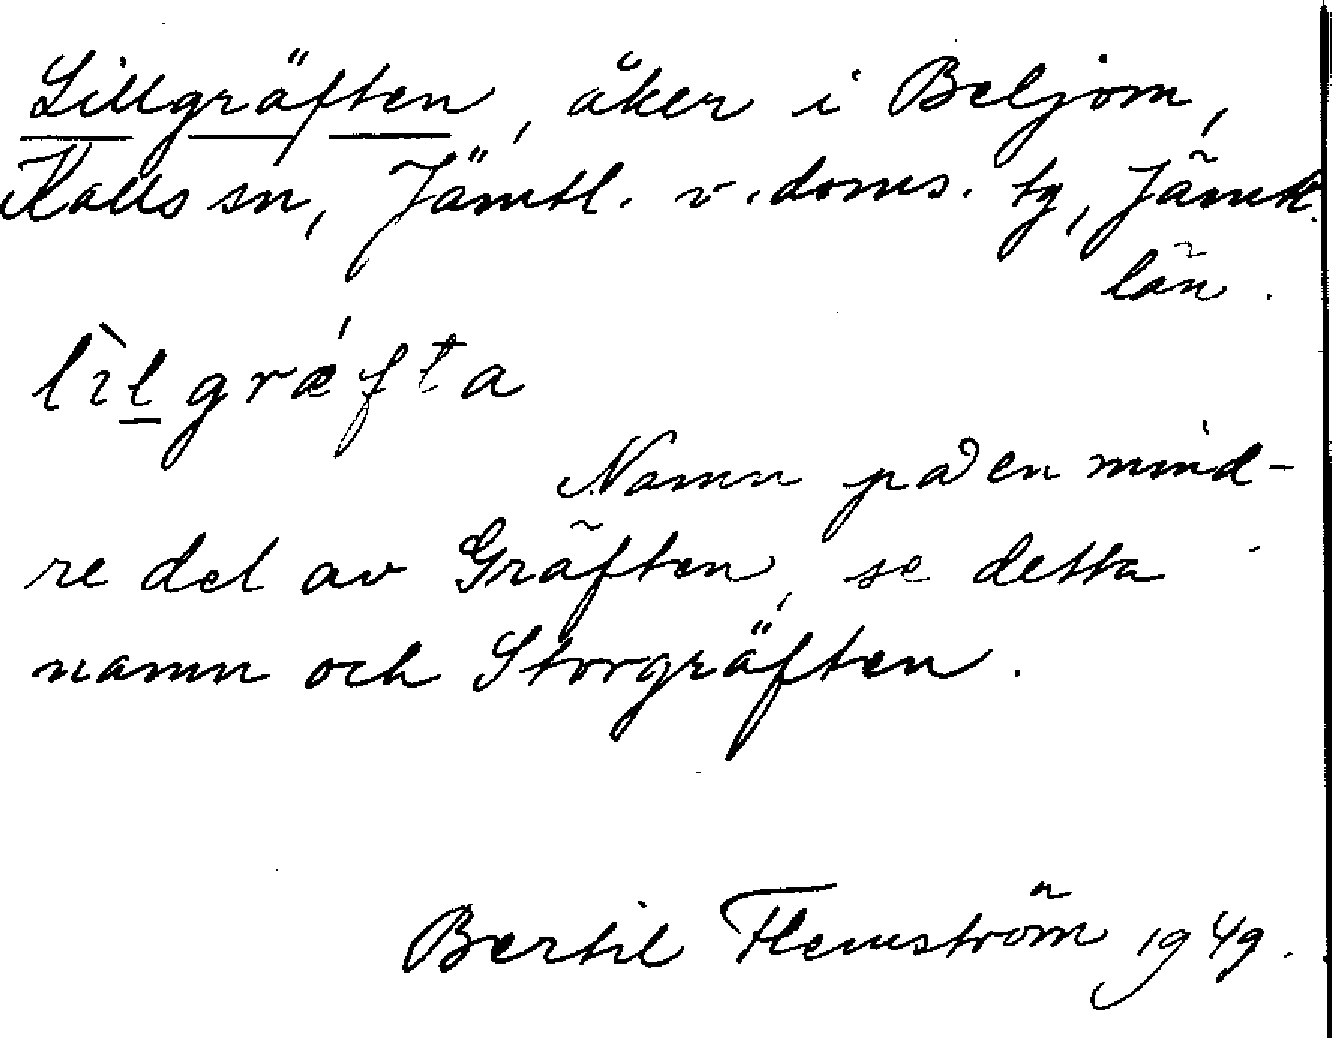 Lillgräften, åker i Beljom,
Kalls sn, Jämtl. v. doms. tg, Jämtl.
län.
lìlgræ´fta
Namn på en mind-
re del av Gräften, se detta
namn och Storgräften.
Bertil Flemström 1949.